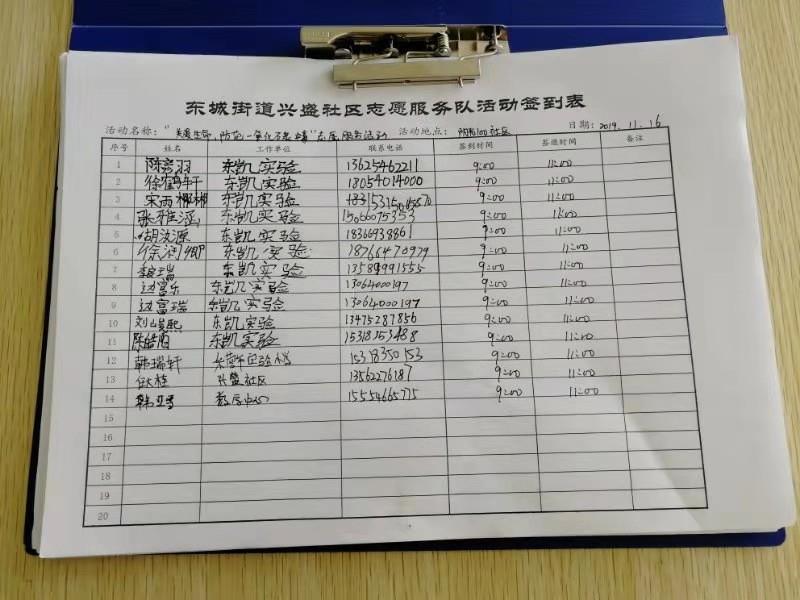 东城街道兴盛社区志愿服务队活动签到表
活动名称："关爱生命,防范一氧化碳中毒"志愿服务活动 活动地点：阳光100社区 日期：2019.11.16
序号 姓名 工作单位 联系电话 签到时间 签退时间 备注
1 陈彦羽 东凯实验 13625462211 9:00 11:00
2 徐鹤轩 东凯实验 18054014000 9:00 11:00
3 宋雨 东凯实验 9:00 11:00
4 张雅涵 东凯实验 15066075353 9:00 11:00
5 胡浚源 东凯实验 18366938861 9:00 11:00
6 徐润 东凯实验 18766470979 9:00 11:00
7 瑞 东凯实验 13589991555 9:00 11:00
8 边富乐 东凯实验 13064000197 9:00 11:00
9 边富瑞 东凯实验 13064000197 9:00 11:00
10 刘 熙 东凯实验 13475287856 9:00 11:00
11 陈皓阳 东凯实验 15318153488 9:00 11:00
12 韩瑞轩 实验校 15318350153 9:00 11:00
13 兴盛社区 13562276187 9:00 11:00
14 韩 15554665775 9:00 11:00
15
16
17
18
19
20